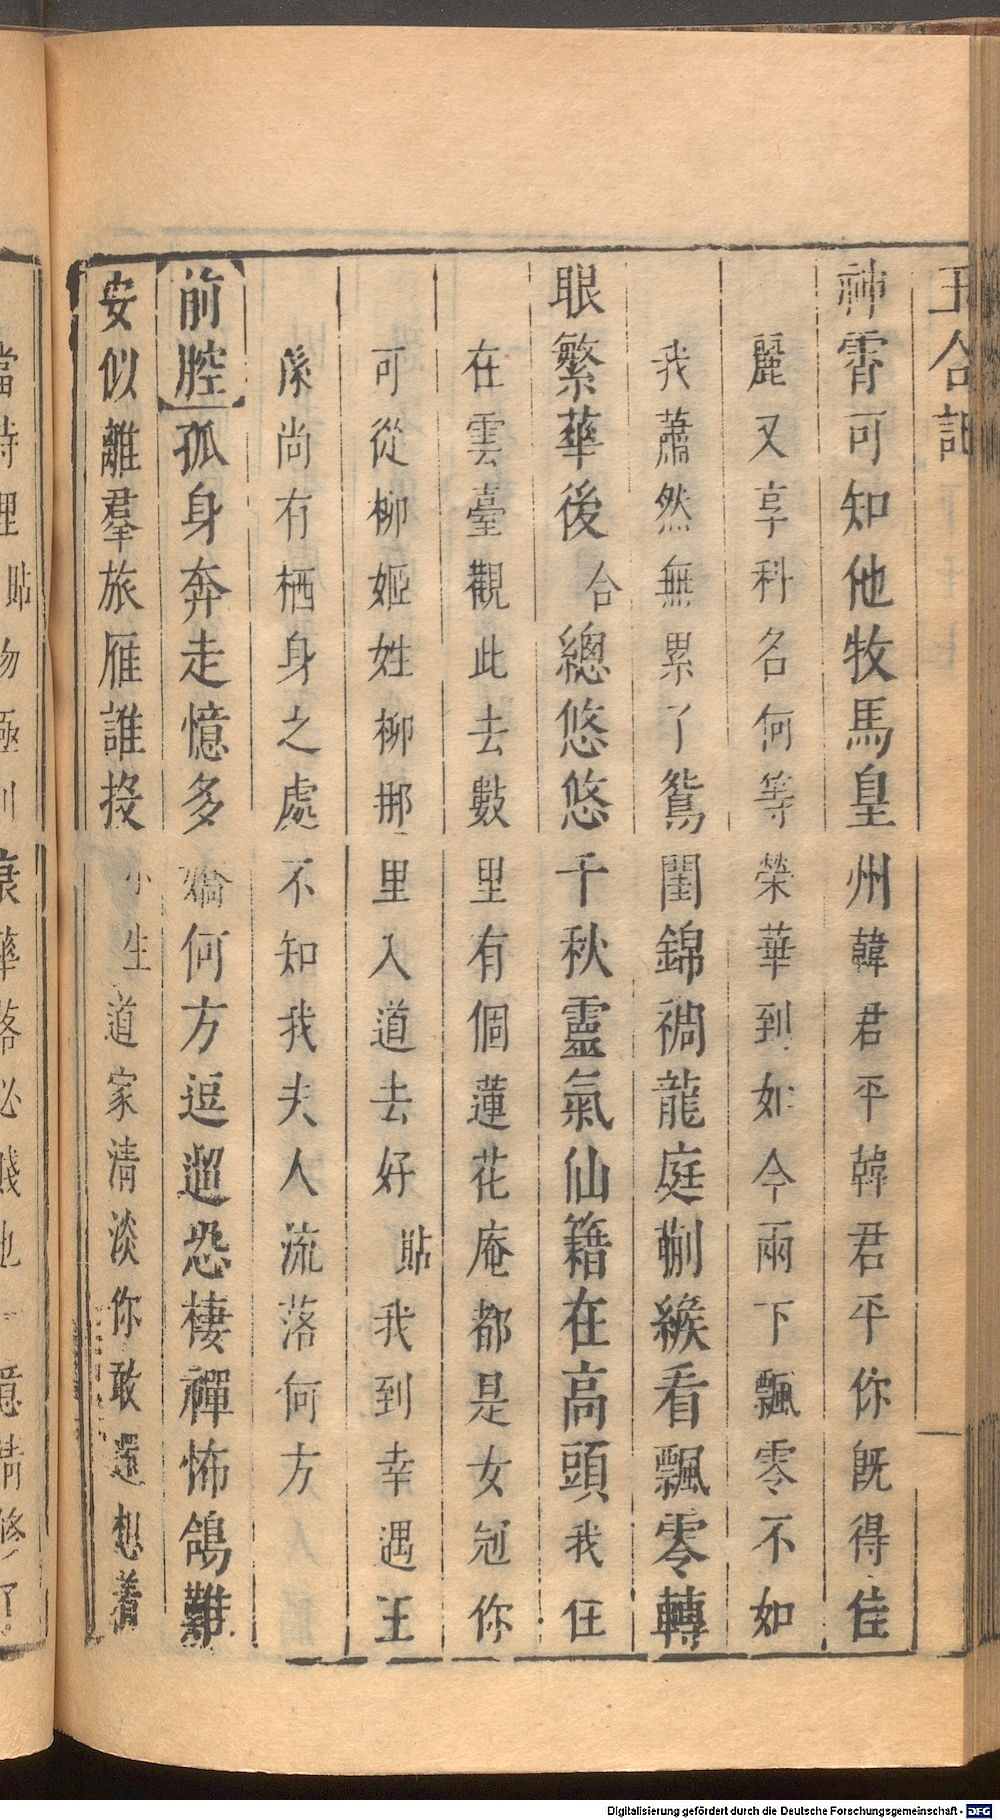 玉合記
神霄可知他牧馬皇州韓君平韓君平你旣得佳
麗又享科名何等榮華到如今兩下飄零不如
我蕭然無累了鴛閨錦裯龍庭蒯緱看飄零轉
眼繁華後合總悠悠千秋靈氣仙籍在高頭我住
在雲臺觀此去數里有個蓮花庵都是女冠你
可從柳姬姓柳那里入道去好貼我到幸遇王
孫尚有栖身之處不知我夫人流落何方
前腔孤身奔走憶多嬌何方逗遛恐棲禪怖鴿難
安似離羣旅雁誰投小生道家清淡你敢還想着
當時哩貼物極則
衰華落必賤也
意清修了
Digitalisierung gefördert durch die Deutsche Forschungsgemeinschaft - DFG